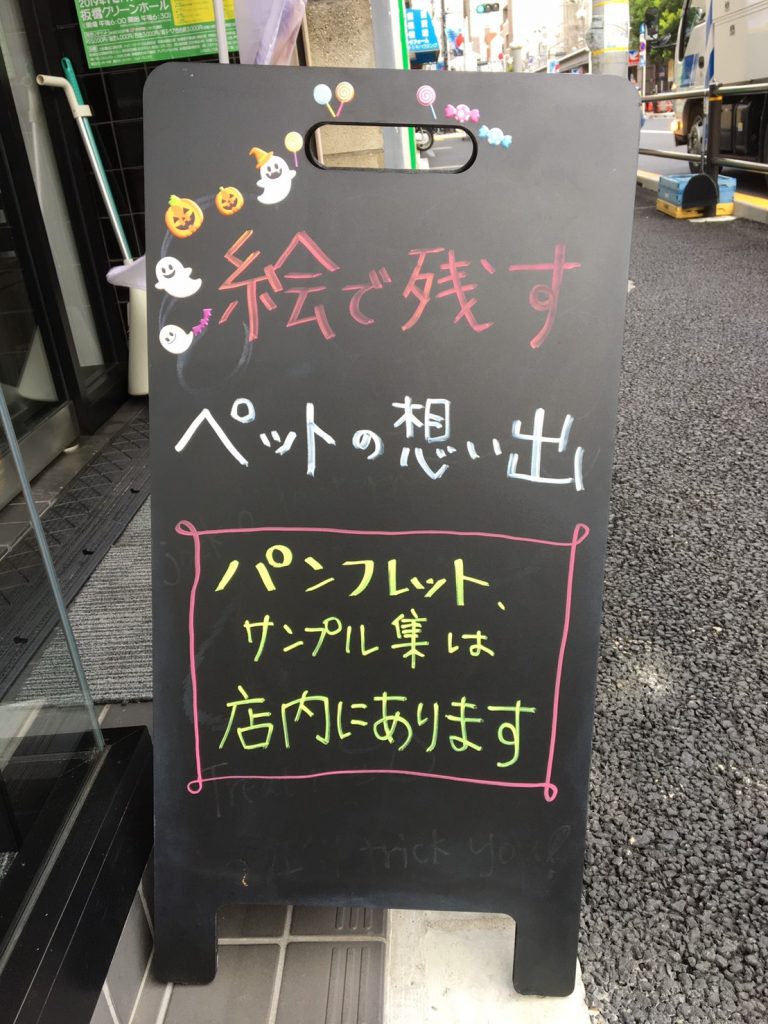 板橋グリーンホール
絵で残す
ペットの想い出
パンフレット、
サンプル集は
店内にあります
trick you!